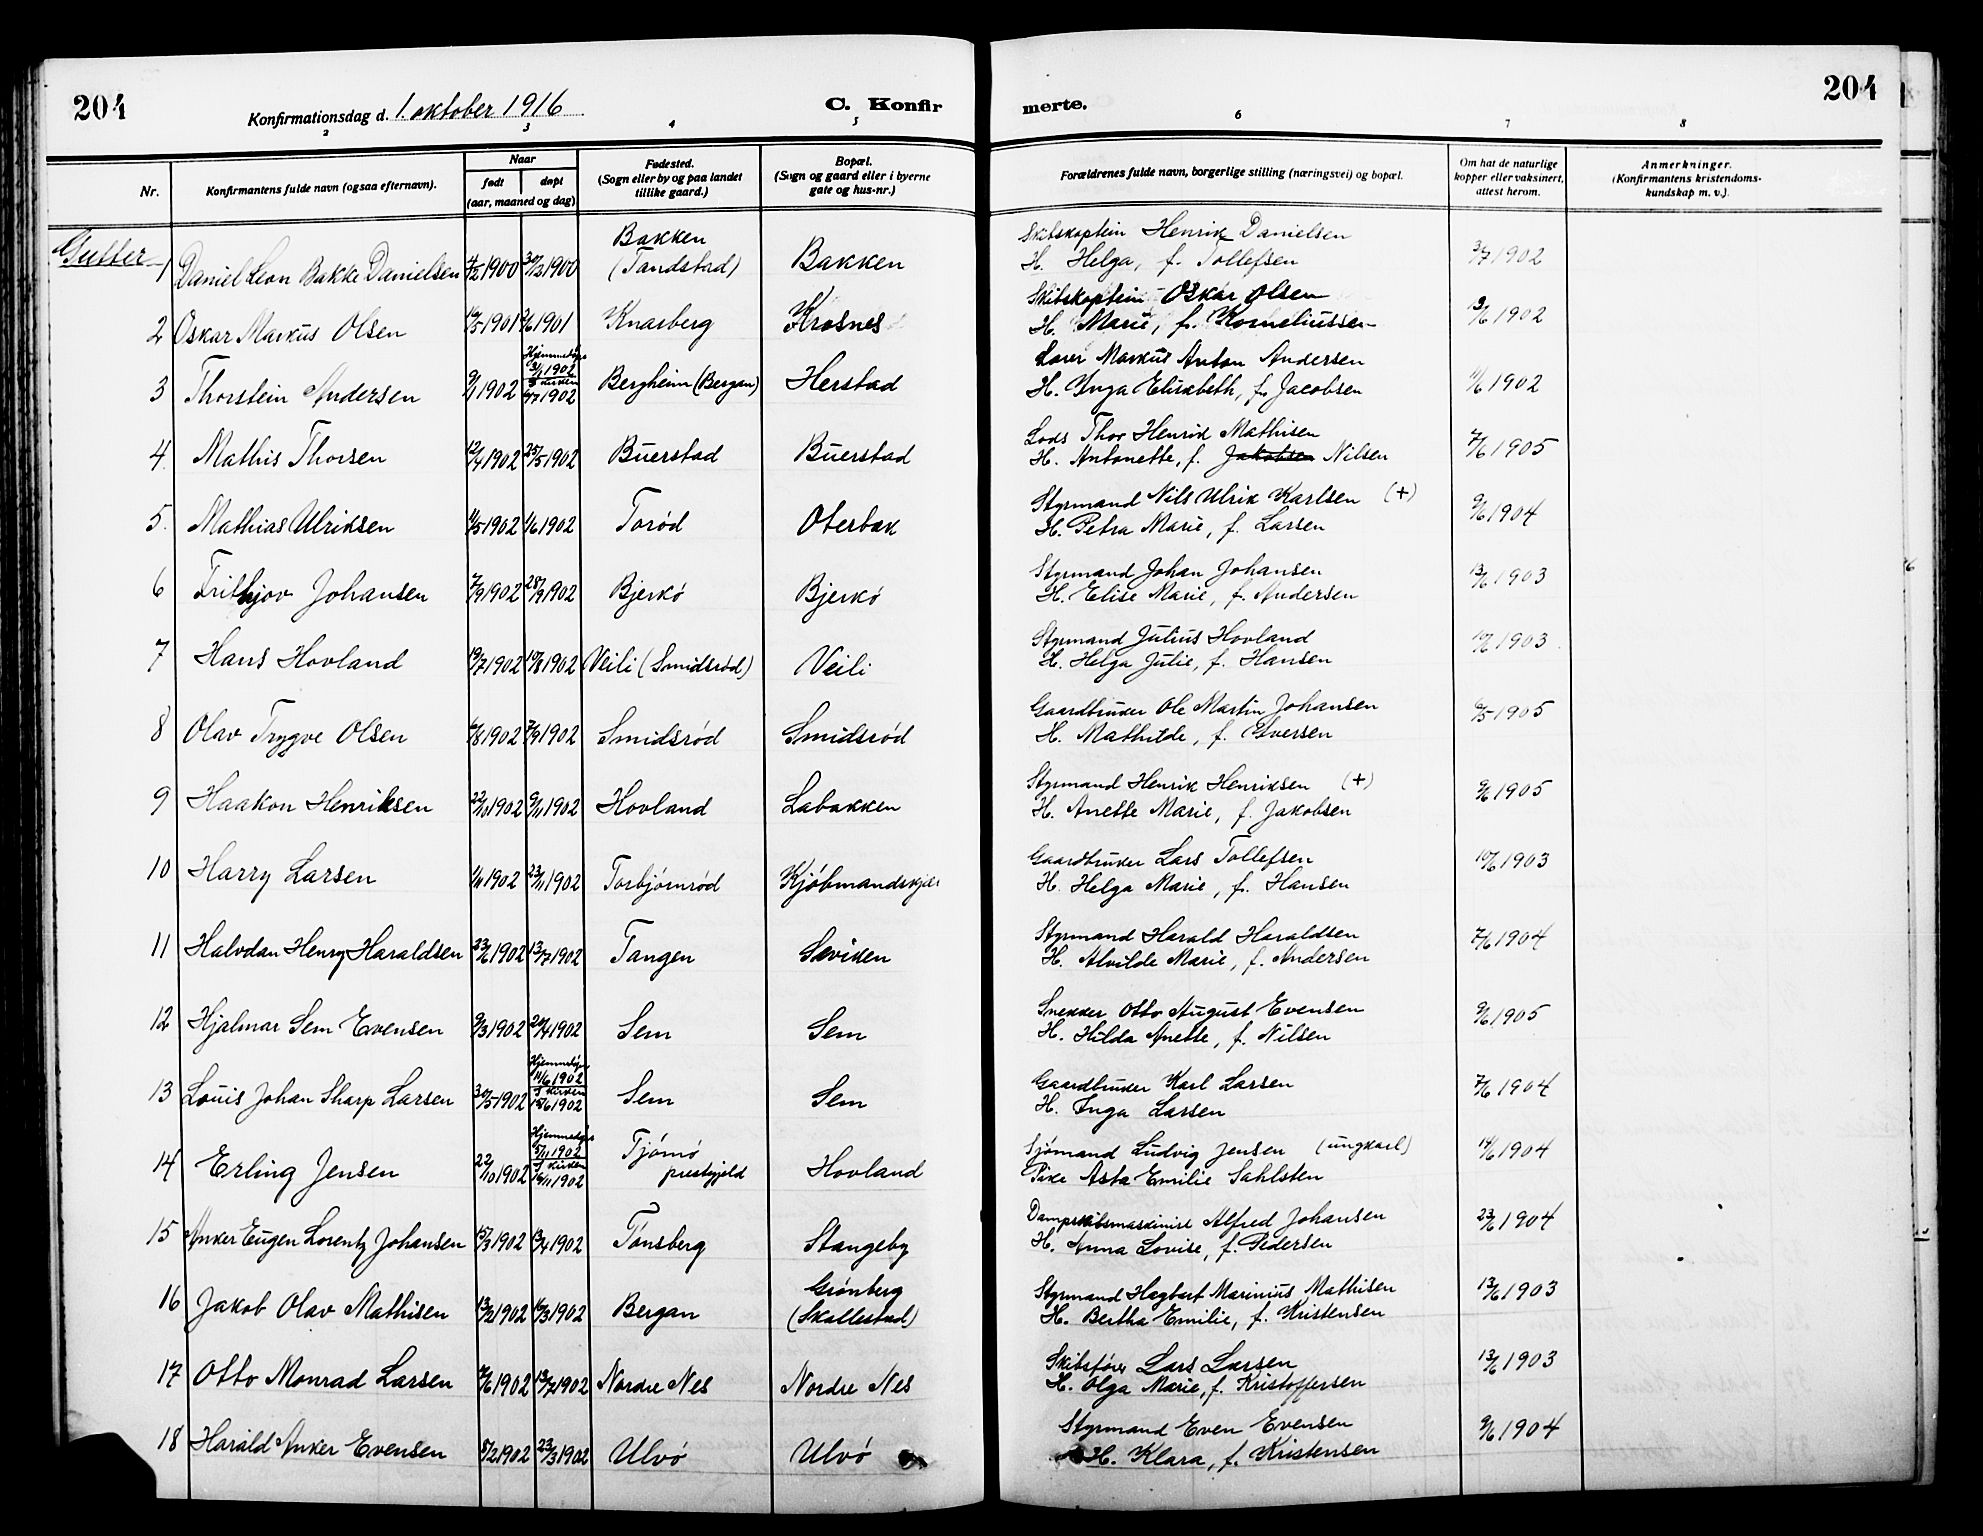 204
Konfirmationsdag d. 1. oktober 1916
C. Konfirmerte.
204
2 3 4 5 6 7 8
Nr. Konfirmantens fulde navn (ogsaa efternavn). Naar født døpt (aar, maaned og dag) Fødested. (Sogn eller by og paa landet tillike gaard.) Bopæl. (Sogn og gaard eller i byerne gate og hus-nr.) Forældrenes fulde navn, borgerlige stilling (næringsvei) og bopæl. Om hat de naturlige kopper eller vaksinert, attest herom. Anmerkninger. (Konfirmantens kristendomskundskap m. v.).
Gutter
1 Daniel Leon Bakke Danielsen 1900 30/12 1900 Bakken (Tandstad) Bakken Skibskaptein Henrik Danielsen 3/7 1902
H. Helga, f. Tollefsen
2 Oskar Markus Olsen 1901 1901 Knarberg Krosnes Skibskaptein Oskar Olsen 1902
H. Marie, f. Korneliussen
3 Thorstein Andersen 1902 Hjemmedøpt 1902 I kirken 1902 Bergheim (Bergan) Herstad Markus Anton Andersen 1902
H. Inga Elisabeth, f. Jacobsen
4. Mathis Thorsen 12/4 1902 25/5 1902 Buerstad Buerstad Lods Thor Henrik Mathisen 7/6 1905
H. Antonette, f. Jakobsen Nilsen
5. Mathias Ulriksen 1902 1/6 1902 Torød Oterbæk Styrmand Nils Ulrik Karlsen (+) 9/6 1904
H. Petra Marie, f. Larsen
6 Frithjov Johansen 7/9 1902 28/9 1902 Bjerkø Bjerkø Styrmand Johan Johansen 13/6 1903
H. Elise Marie, f. Andersen
7 Hans Hovland 19/7 1902 10/8 1902 Veili (Smidsrød) Veili Styrmand Julius Hovland 1903
H. Helga Julie, f. Hansen
8 Olav Trygve Olsen 1902 7/9 1902 Smidsrød Smidsrød Gaardbruker Ole Martin Johansen 1905
H. Mathilde, f. Iversen
9 Haakon Henriksen 22/10 1902 9/11 1902 Hovland Labakken Styrmand Henrik Henriksen (+) 9/6 1905
H. Anette Marie, f. Jakobsen
10 Harry Larsen 1902 23/11 1902 Torbjørnrød Kjøbmandskjær Gaardbruker Lars Tollefsen 10/6 1903
H. Helga Marie, f. Hansen
11 Halvdan Henry Haraldsen 23/6 1902 13/7 1902 Tangen Seviken Styrmand Harald Haraldsen 7/6 1904
H. Alvilde Marie, f. Andersen
12 Hjalmar Sem Evensen 9/3 1902 20/4 1902 Sem Sem Snekker Otto August Evensen 9/6 1905
H. Hilda Anette, f. Nilsen
13 Louis Johan Sharp Larsen 30/5 1902 Hjemmedøpt 14/6 1902 I kirken 15/6 1902 Sem Sem Gaardbruker Karl Larsen 7/6 1904
H. Inga Larsen
14 Erling Jensen 22/10 1902 Hjemmedøpt 5/11 1902 I kirken 16/11 1902 Tjømø prestegjeld Hovland Sjømand Ludvig Jensen (ungkarl) 14/6 1904
Pike Asta Emilie Sahlsten
15 Anker Eugen Lorentz Johansen 15/3 1902 13/4 1902 Tønsberg Stangeby Dampskibsmaskinist Alfred Johansen 23/6 1904
H. Anna Lovise, f. Pedersen
16 Jakob Olav Mathisen 13/2 1902 16/3 1902 Bergan Grønberg (Skallestad) Styrmand Hagbart Marinius Mathisen 13/6 1903
H. Bertha Emilie, f. Kristensen
17 Otto Monrad Larsen 1902 13/7 1902 Nordre Nes Nordre Nes Skibsfører Lars Larsen 13/6 1903
H. Olga Marie, f. Kristoffersen
18 Harald Anker Evensen 5/2 1902 23/3 1902 Ulvø Ulvø Styrmand Even Evensen 9/6 1904
H. Klara, f. Kristensen